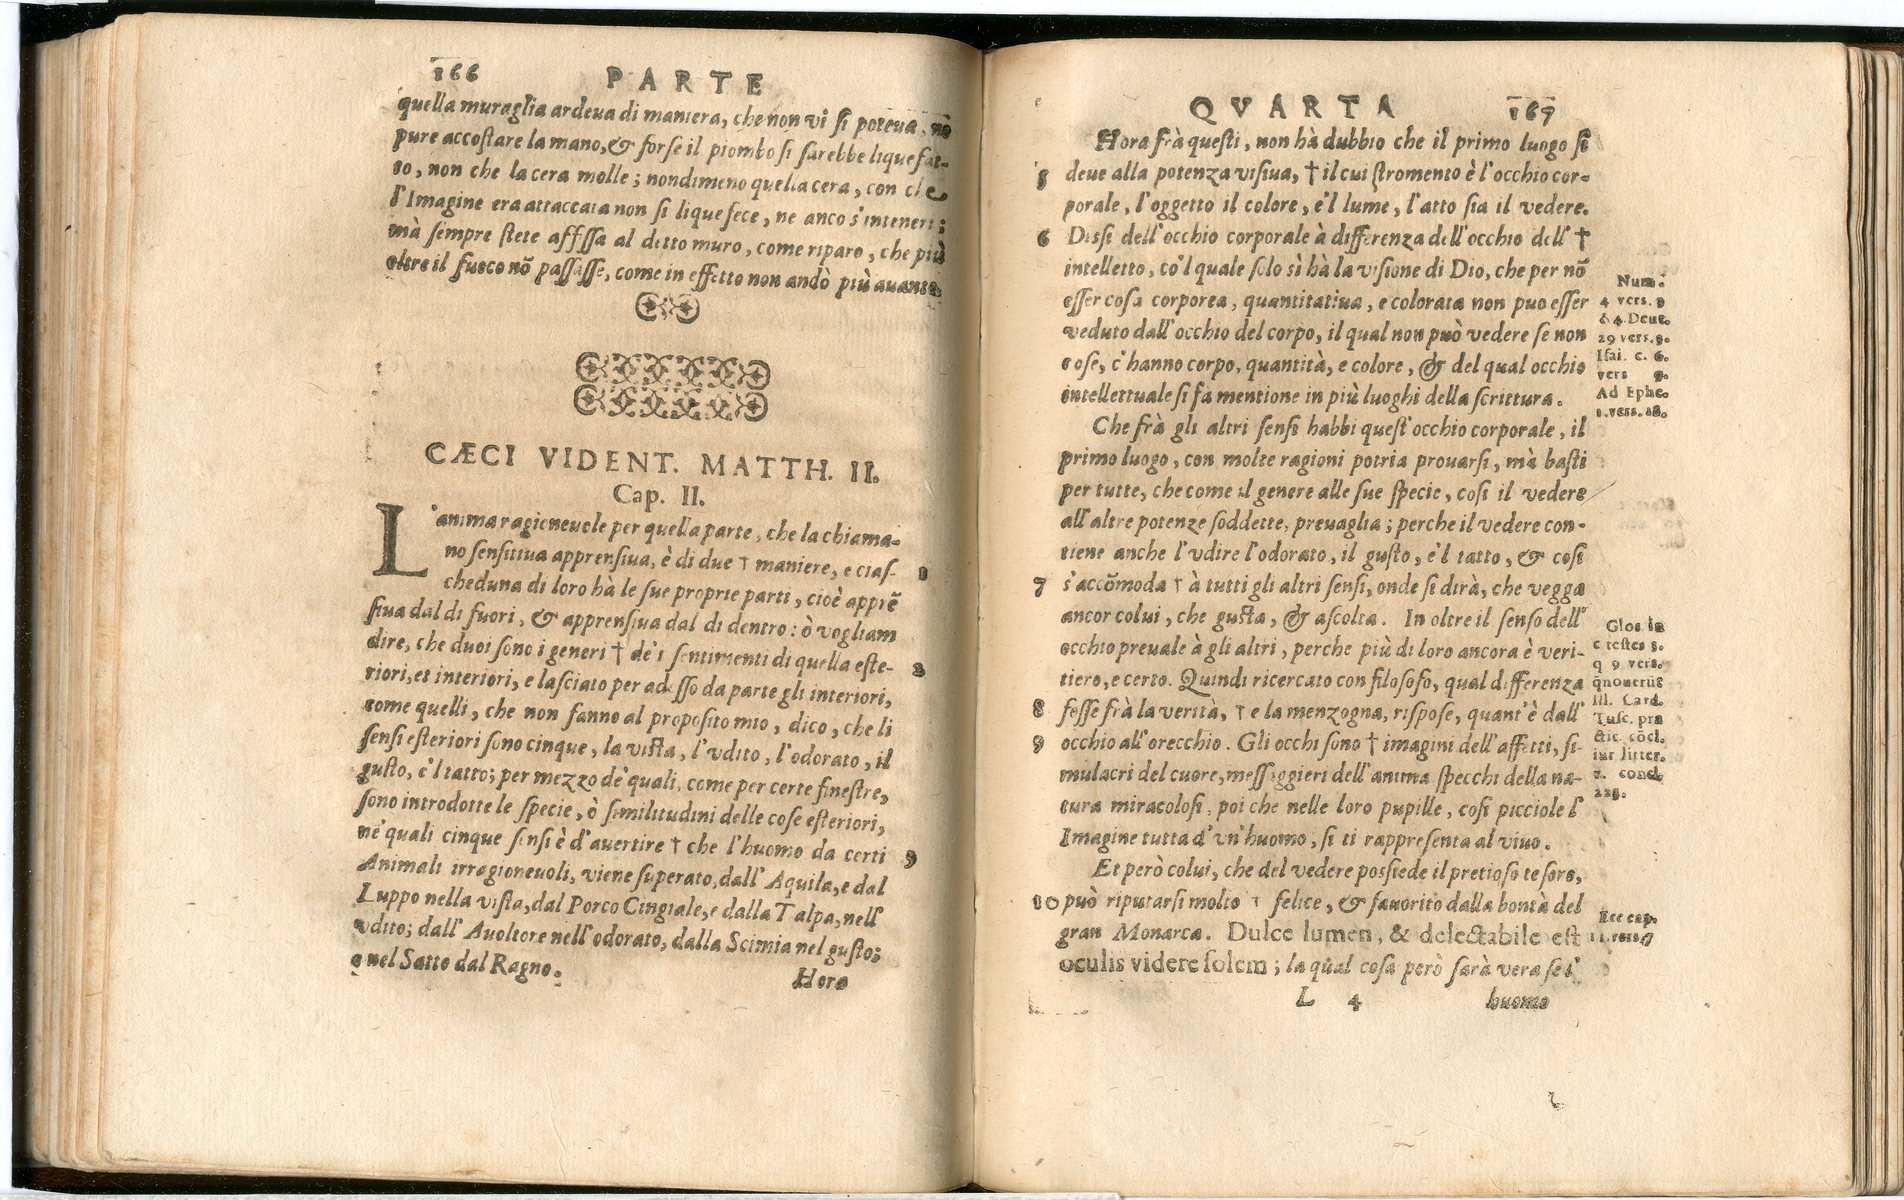 166 PARTE
quella muraglia ardeua di maniera, che non vi si poteua, nō
pure accoſtare la mano, & forſe il piombo ſi ſarebbe lique fat-
to, non che la cera molle; nondimeno quella cera, con che
l'Imagine era attaccata non ſi lique fece, ne anco s'inteneri;
mà ſempre ſtete affiſſa al detto muro, come riparo, che più
oltre il fuoco nō paſſaſſe, come in effetto non andò più auante.
CÆCI VIDENT. MATTH. II.
Cap. II.
L'anima ragioneuole per quella parte, che la chiama-
no ſenſitiua apprenſiua, è di due † maniere, e ciaſ- 1
cheduna di loro hà le ſue proprie parti, cioè apprē
ſiua dal di fuori, & apprenſiua dal di dentro: ò vogliam
dire, che duoi ſono i generi † de' i ſentimenti di quella eſte- 2
riori, et interiori, e laſciato per adeſſo da parte gli interiori,
come quelli, che non fanno al propoſito mio, dico, che li
ſenſi eſteriori ſono cinque, la viſta, l'vdito, l'odorato, il
guſto, e'l tatto; per mezzo de' quali, come per certe fineſtre,
ſono introdotte le ſpecie, ò ſimilitudini delle coſe eſteriori,
ne' quali cinque ſenſi è d'auertire † che l'huomo da certi 3
Animali irragioneuoli, viene ſuperato, dall' Aquila, e dal
Luppo nella viſta, dal Porco Cingiale, e dalla Talpa, nell'
vdito; dall' Auoltore nell'odorato, dalla Scimia nel guſto;
e nel Satto dal Ragno.
Hora
QVARTA 167
Hora frà queſti, non hà dubbio che il primo luogo ſi
5 deue alla potenza viſiua, † il cui ſtromento è l'occhio cor-
porale, l'oggetto il colore, e'l lume, l'atto ſia il vedere.
6 Diſſi dell'occhio corporale à differenza dell'occhio dell' †
intelletto, co'l quale ſolo sì hà la viſione di Dio, che per nō
eſſer coſa corporea, quantitatiua, e colorata non puo eſſer
veduto dall'occhio del corpo, il qual non può vedere ſe non
coſe, c'hanno corpo, quantità, e colore, & del qual occhio
intellettuale ſi fa mentione in più luoghi della ſcrittura.
Num.
4 verſ. 9
& 4. Deut.
29 verſ. 9.
Iſai. c. 6.
verſ 9.
Ad Ephe.
1. verſ. 18.
Che frà gli altri ſenſi habbi queſt'occhio corporale, il
primo luogo, con molte ragioni potria prouarſi, mà baſti
per tutte, che come il genere alle ſue ſpecie, coſi il vedere
all'altre potenze ſoddette, preuaglia; perche il vedere con-
tiene anche l'vdire l'odorato, il guſto, e'l tatto, & coſi
7 s'accōmoda † à tutti gli altri ſenſi, onde ſi dirà, che vegga
ancor colui, che guſta, & aſcolta. In oltre il ſenſo dell'
occhio preuale à gli altri, perche più di loro ancora è veri-
tiero, e certo. Quindi ricercato con filoſofo, qual differenza
8 foſſe frà la verità, † e la menzogna, riſpoſe, quant'è dall'
9 occhio all'orecchio. Gli occhi ſono † imagini dell'affetti, ſi-
mulacri del cuore, meſſaggieri dell'anima ſpecchi della na-
tura miracoloſi, poi che nelle loro pupille, coſi picciole l'
Imagine tutta d'vn'huomo, ſi ti rappreſenta al viuo.
Gloſ. in
c teſtes 3.
q 9 verſ.
q̄nouerūt
Ill. Card.
Tuſc. pra
ctic. cōcl.
iur litter.
Et però colui, che del vedere poſſiede il pretioſo teſoro,
10 può riputarſi molto † felice, & fauorito dalla bontà del
gran Monarca. Dulce lumen, & delectabile eſt
oculis videre ſolem; la qual coſa però ſarà vera ſe l'
L 4 huomo